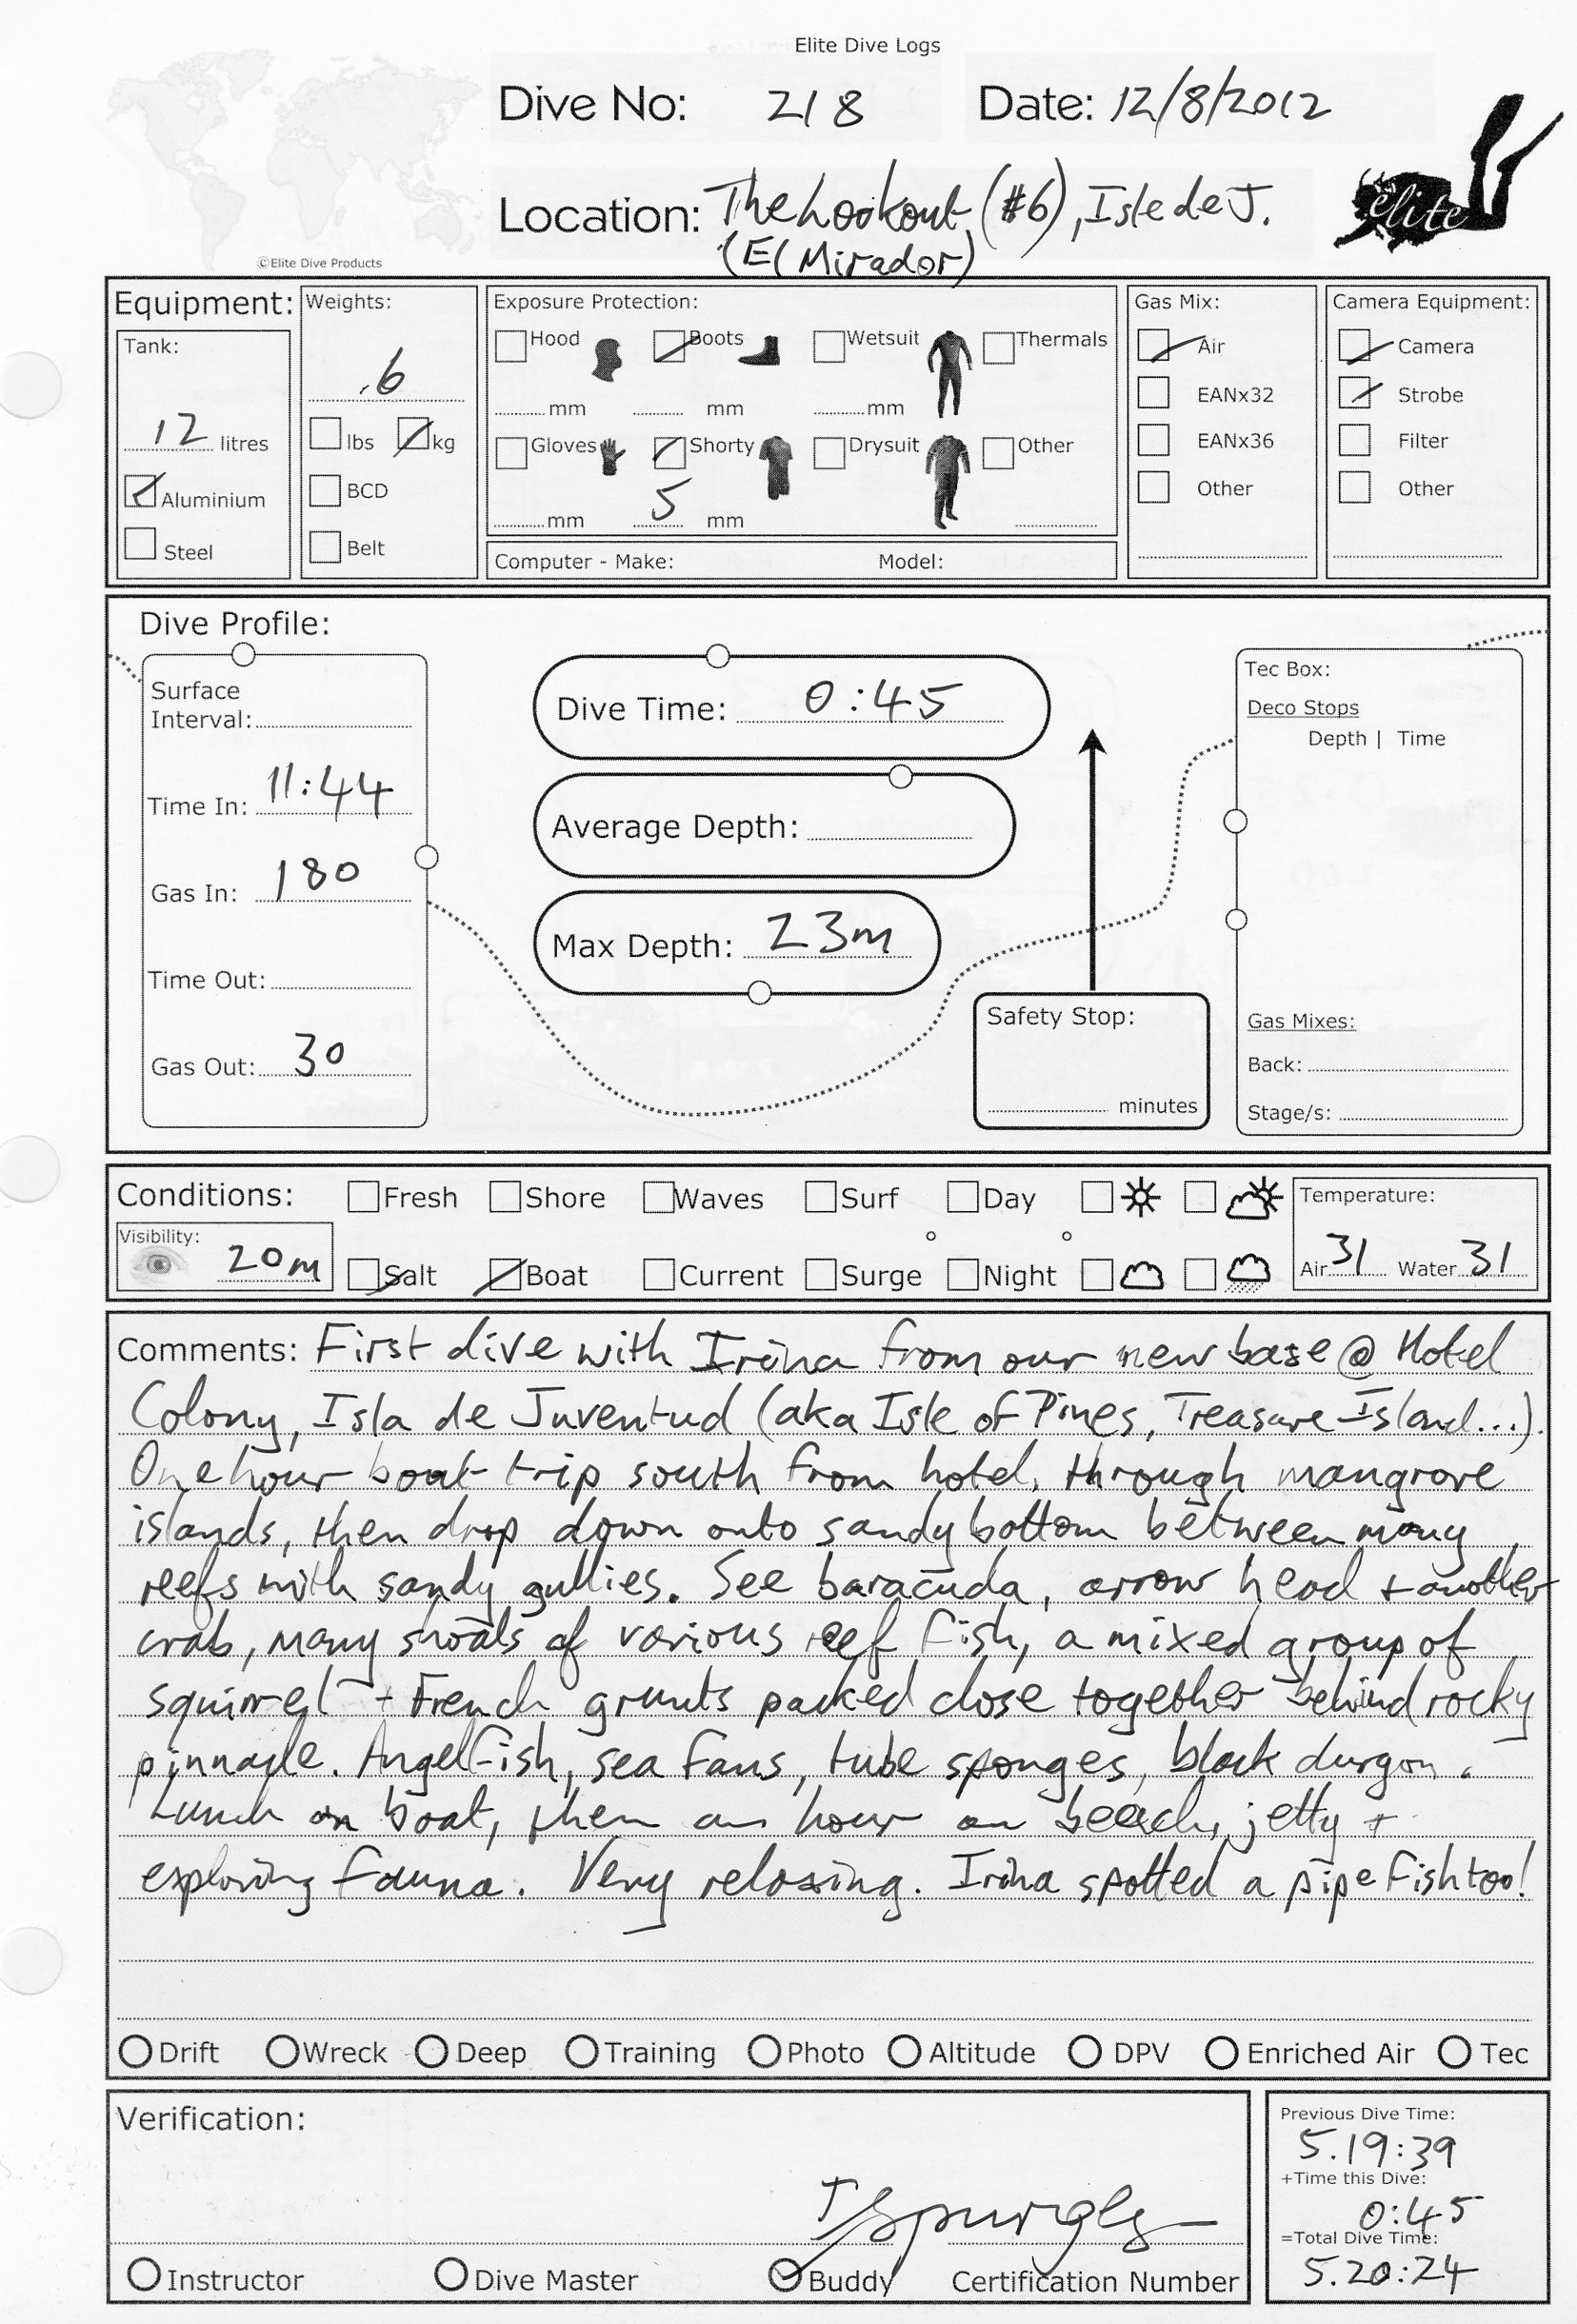 Elite Dive Logs
Dive No: 218 Date: 12/8/2012
Location: The Lookout (#6), Isle de J.
(El Mirador)
elite
©Elite Dive Products
Equipment: Weights: Exposure Protection: Gas Mix: Camera Equipment:
Tank: Hood Boots Wetsuit Thermals Air Camera
6 mm mm mm EANx32 Strobe
12 litres lbs kg Gloves Shorty Drysuit Other EANx36 Filter
Aluminium BCD 5 Other Other
mm mm
Steel Belt Computer - Make: Model:
Dive Profile:
Surface
Interval:
Time In: 11:44
Gas In: 180
Time Out:
Gas Out: 30
Dive Time: 0:45
Average Depth:
Max Depth: 23m
Safety Stop:
minutes
Tec Box:
Deco Stops
Depth | Time
Gas Mixes:
Back:
Stage/s:
Conditions: Fresh Shore Waves Surf Day Temperature:
Visibility: 20m Salt Boat Current Surge Night Air 31 Water 31
Comments: First dive with Irina from our new base @ Hotel
Colony, Isla de Juventud (aka Isle of Pines, Treasure Island...).
One hour boat trip south from hotel, through mangrove
islands, then drop down onto sandy bottom between many
reefs with sandy gullies. See baracuda, arrow head + another
crab, many shoals of various reef fish, a mixed group of
squirrel + French grunts packed close together behind rocky
pinnacle. Angelfish, sea fans, tube sponges, black durgon.
Lunch on boat, then an hour on beach, jetty +
exploring fauna. Very relaxing. Irina spotted a pipefish too!
Drift Wreck Deep Training Photo Altitude DPV Enriched Air Tec
Verification:
Instructor Dive Master Buddy Certification Number
Previous Dive Time:
5.19:39
+Time this Dive:
0:45
=Total Dive Time:
5.20:24